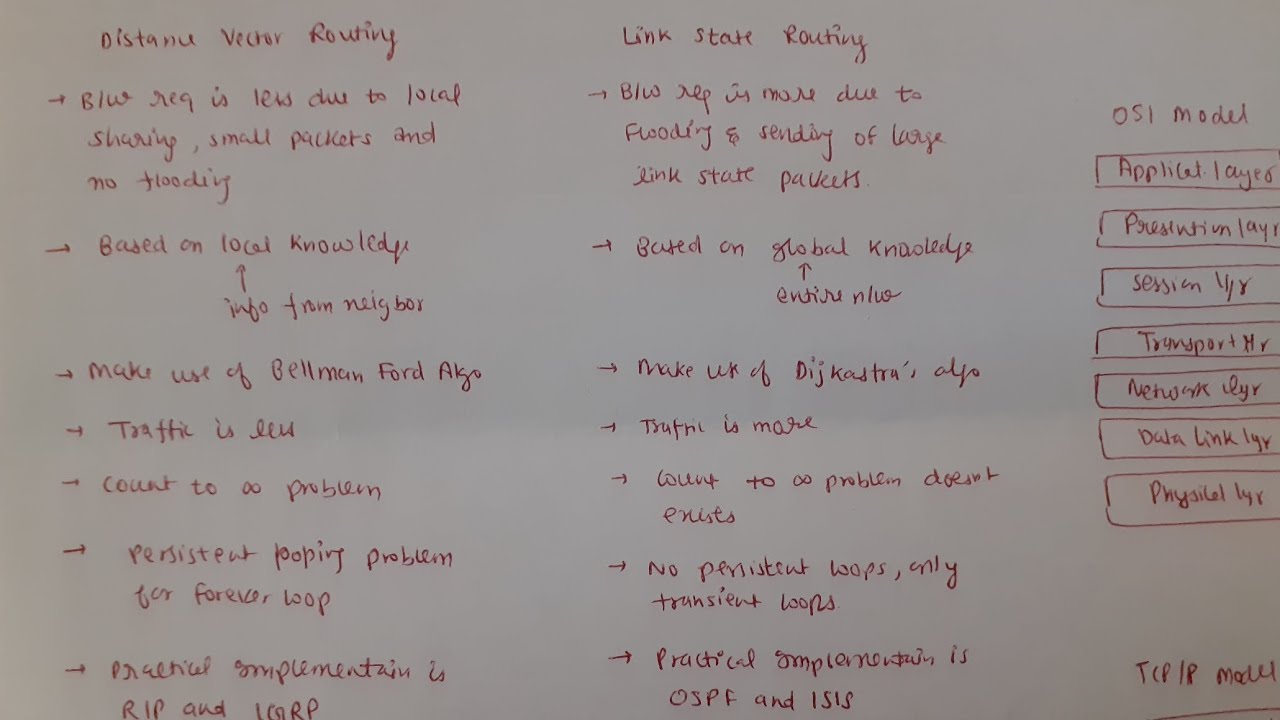 Distance Vector Routing
→ B/w req is less due to local
sharing, small packets and
no flooding
→ Based on local knowledge
↑
info from neigbor
→ Make use of Bellman Ford Algo
→ Traffic is less
→ Count to ∞ problem
→ Persistent looping problem
for forever loop
→ Practical implementain is
RIP and IGRP
Link State Routing
→ B/w req is more due to
Flooding & sending of large
link state packets.
→ Based on global knowledge
↑
entire n/w
→ Make use of Dijkastra's algo
→ Traffic is more
→ Count to ∞ problem doesnt
exists
→ No persistent loops, only
transient loops.
→ Practical implementain is
OSPF and ISIS
OSI Model
Applicat. layer
Presention layr
Session lyr
Transport
Network lyr
Data Link lyr
Physical lyr
TCP/IP Model